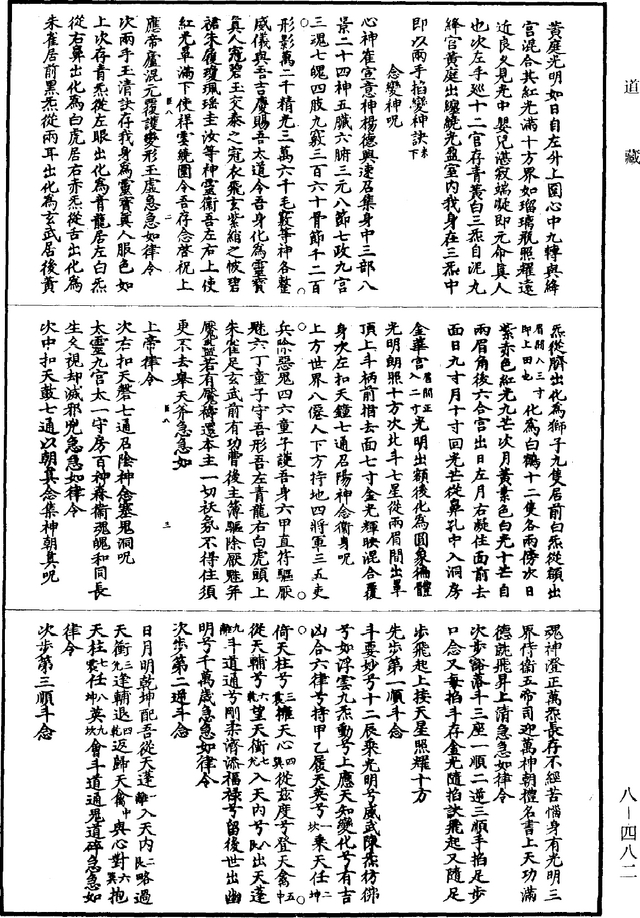 道藏
黃庭光明如日自左外上圓心中九轉與絳
宮混合其紅光滿十方界如瑠璃瓶照耀遠
近良久見光中嬰兒湛寂端凝即元命真人
也次左手廵十二宮存青黃白三炁自泥丸
絳宮黃庭出繚繞光盈室內我身在三炁中
即以兩手掐變神訣未下
念變神呪
心神崔宣意神楊德興速召集身中三部八
景二十四神五臟六腑三元八節七政九宮
三魂七魄四肢九竅三百六十骨節千二百
形影萬二千精光三萬六千毛竅等神各整
威儀與吾言慶賜吾太道令吾身化為靈寶
真人冠碧玉交泰之冠衣飛玄紫綃之帔碧
裙朱履瓊珮瑤圭汝等神靈衛吾左右上使
紅光罩滿下使祥雲繞圍令吾存念啓祝上
應帝廬混元覆護變形玉虛急急如律令
次兩手玉清訣存我身為靈寶真人服色如
上次存青炁從左眼出化為青龍居左白炁
從右鼻出化為白虎居右赤炁從舌出化為
朱雀居前黑炁從兩耳出化為玄武居後黃
炁從臍出化為獅子九隻居前白炁從頷出
眉間入三寸即上田也化為白鶴十二隻各兩傍次日
紫赤色紅光九芒次月黃素色白光十芒自
兩眉角後六合宮出日左月右凝住面前去
面日九寸月十寸回光芒從鼻孔中入洞房
金華宮眉間正入二寸光明出額後化為圓象徧體
光明朗照十方次北斗七星從兩眉間出罩
頂上斗柄前指去面七寸金光輝映混合覆
身次左扣天鐘七通召陽神念衛身呪
上方世界八僊人下方持地四將軍三五吏
兵除惡鬼四六童子護吾身六甲直符驅厭
魅六丁童子守吾形吾左青龍右白虎頭上
朱雀足玄武前有功曹後主薄驅除厭魅并
魘蠱若有厭禱還本主一切祅氛不得住須
更不去舉天斧急急如
上帝律令
次右扣天磬七通召陰神念塞鬼洞呪
太靈九宮太一守房百神森衛魂魄和同長
生久視却滅邪兇急急如律令
次中扣天鼓七通以朝真念集神朝真呪
魂神澄正萬炁長存不經苦惱身有光明三
界侍衛五帝司迎萬神朝禮名書上天功滿
德就飛昇上清急急如律令
次步豁落斗三座一順二逆三順手掐足步
口念又每掐手存金光隨掐訣飛起又隨足
步飛起上接天星照耀十方
先步第一順斗念
斗要妙兮十二辰乘光明兮威武陳炁彷彿
兮如浮雲九炁動兮上應天知變化兮有吉
凶合六律兮持甲乙履天英兮一坎乘天任二坤
倚天柱兮三震擁天心四巽從茲度兮登天禽五中
從天輔兮六乾望天衝七兌入天內兮八艮出天蓬
九離斗道通兮剛柔濟添福祿兮留後世出幽
明兮千萬歲急急如律令
次步第二逆斗念
日月明乾坤配吾從天蓬一離入天內二艮略過
天衝三兌逢輔退四乾返歸天禽中與心對六巽抱
天柱七震任八坤英九坎會斗道通鬼道碎急急如
律令
次步第三順斗念
八－四八二